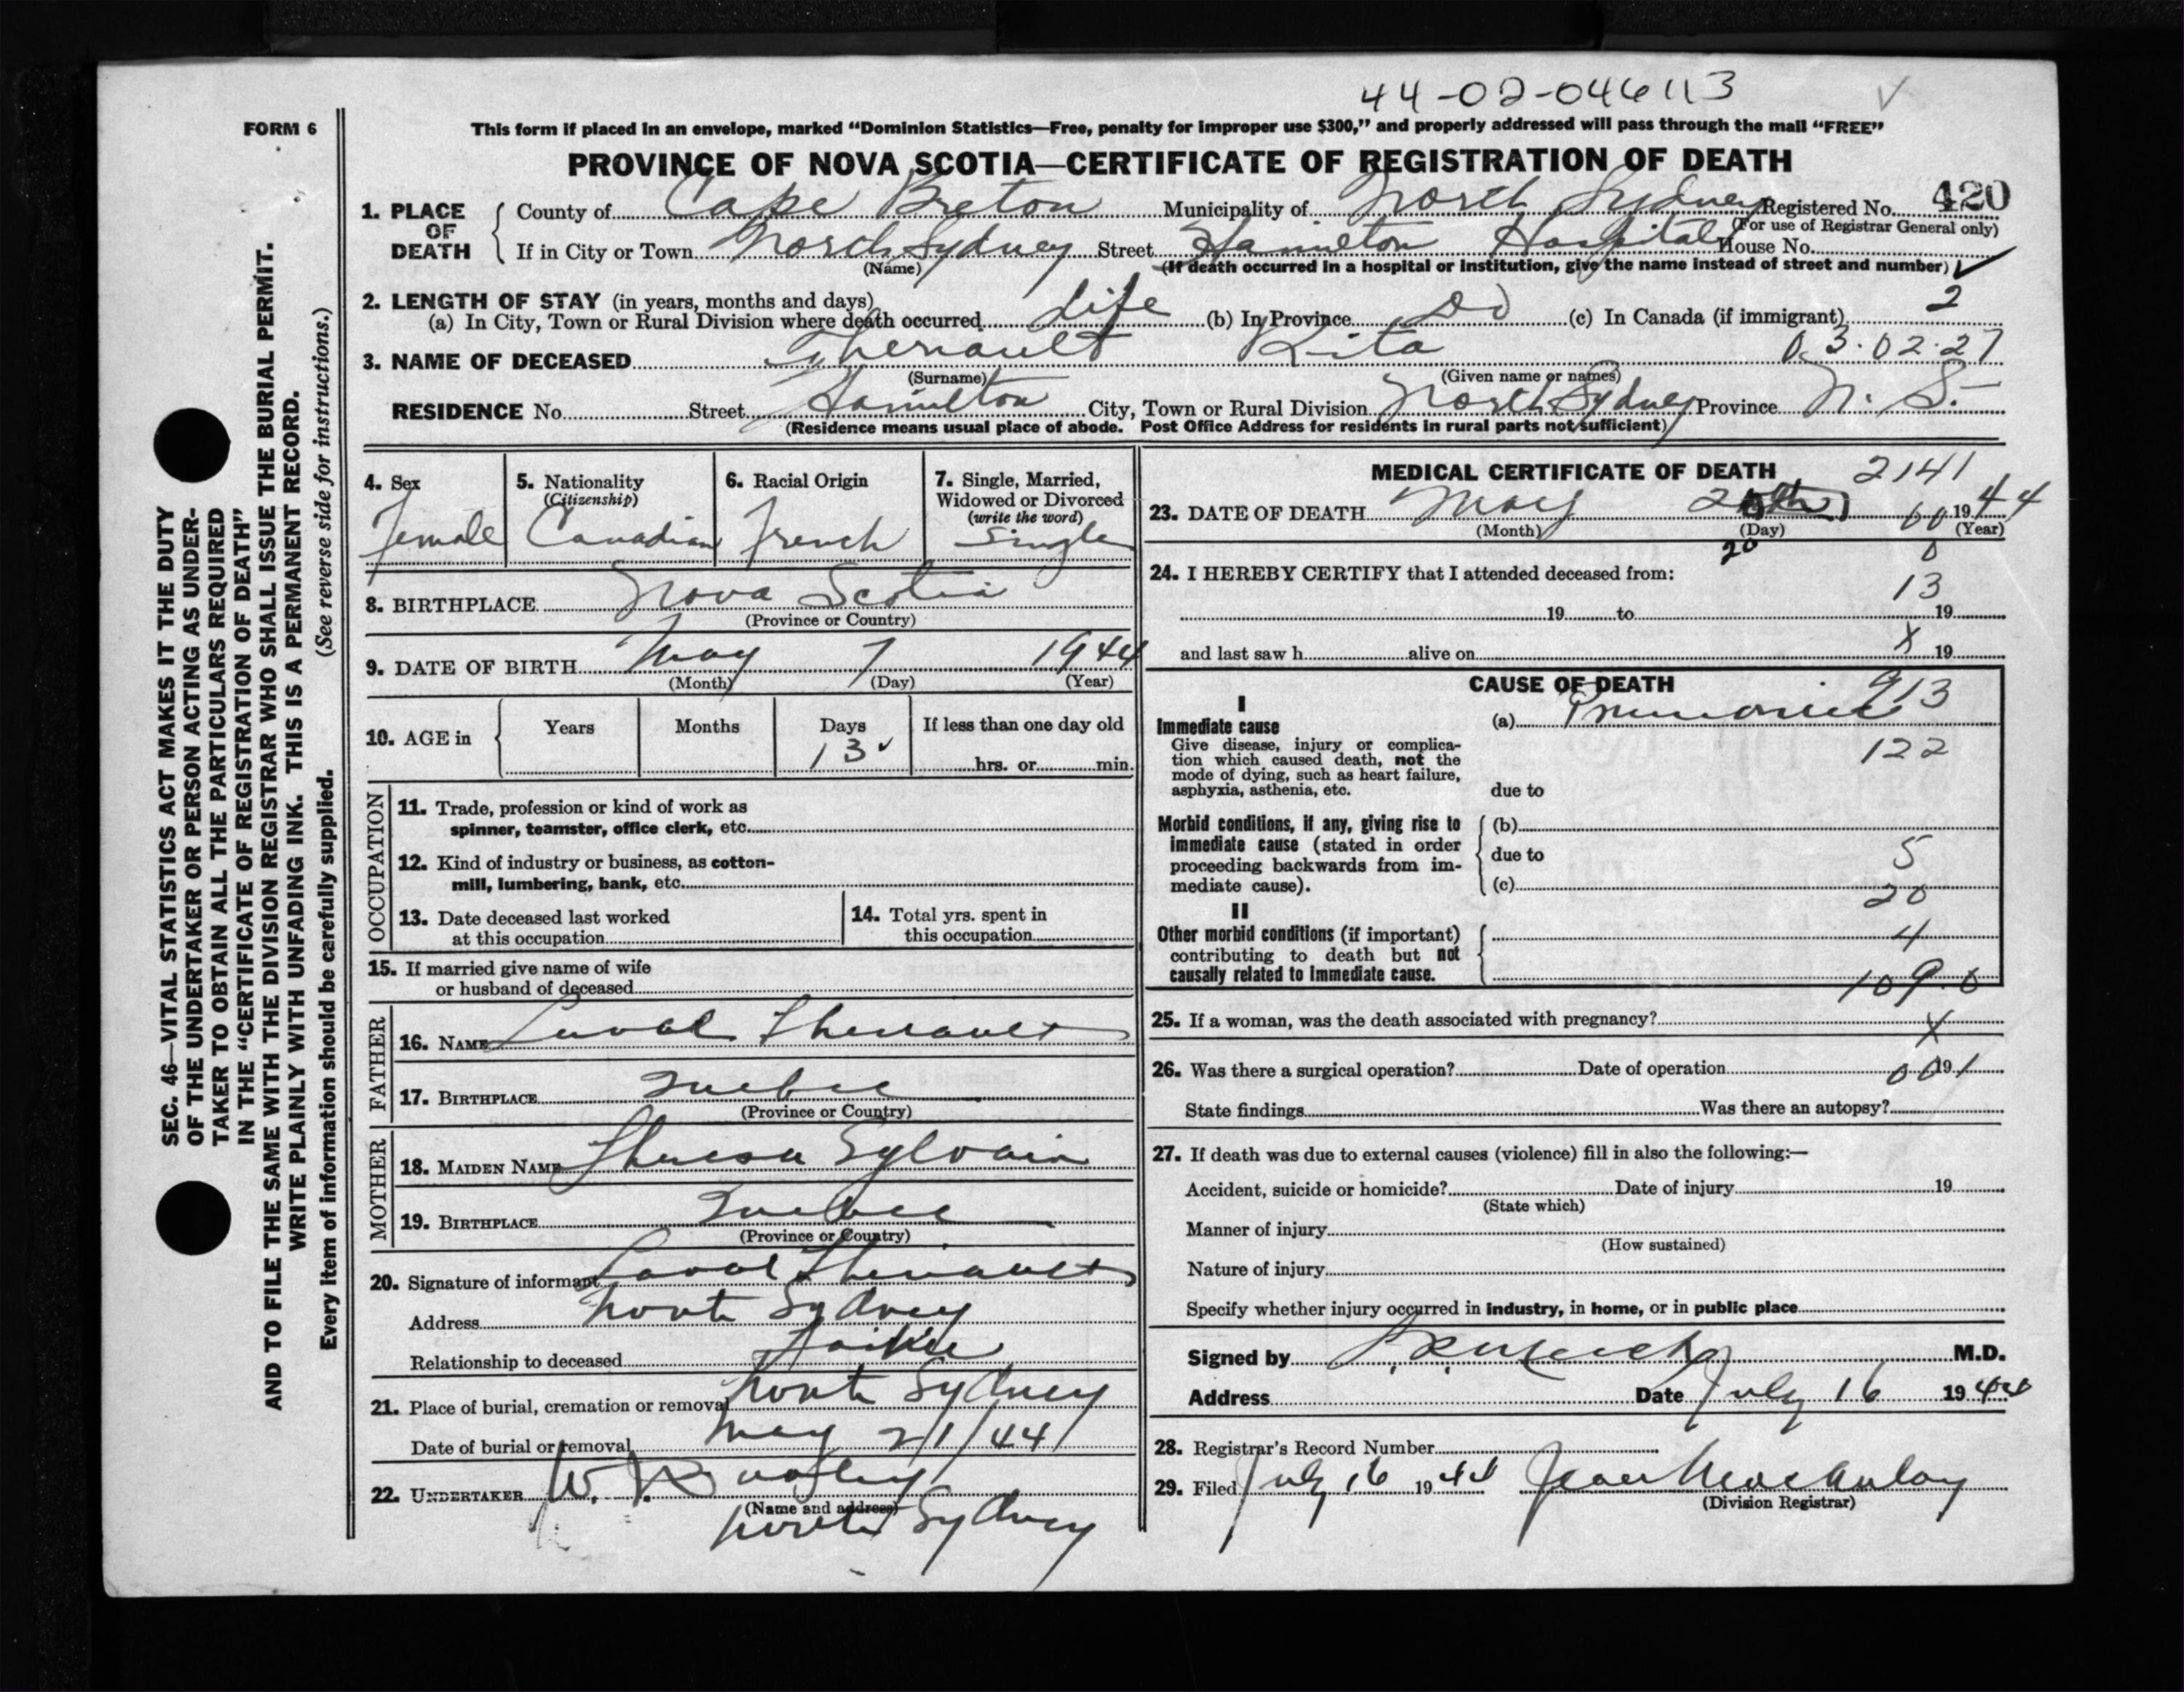 44-02-046113
FORM 6
This form if placed in an envelope, marked “Dominion Statistics—Free, penalty for improper use $300,” and properly addressed will pass through the mail “FREE”
PROVINCE OF NOVA SCOTIA—CERTIFICATE OF REGISTRATION OF DEATH
420
1. PLACE OF DEATH
County of Cape Breton Municipality of North Sydney Registered No.
(For use of Registrar General only)
If in City or Town North Sydney Street Hamilton Hospital House No.
(Name) (If death occurred in a hospital or institution, give the name instead of street and number)
2. LENGTH OF STAY (in years, months and days)
(a) In City, Town or Rural Division where death occurred Life (b) In Province Do (c) In Canada (if immigrant) 2
3. NAME OF DECEASED Theriault Rita 03.02.27
(Surname) (Given name or names)
RESIDENCE No. Street Hamilton City, Town or Rural Division North Sydney Province N. S.
(Residence means usual place of abode. Post Office Address for residents in rural parts not sufficient)
4. Sex
Female
5. Nationality
(Citizenship)
Canadian
6. Racial Origin
French
7. Single, Married,
Widowed or Divorced
(write the word)
Single
8. BIRTHPLACE Nova Scotia
(Province or Country)
9. DATE OF BIRTH May 7 1944
(Month) (Day) (Year)
10. AGE in
Years Months Days If less than one day old
13 hrs. or min.
OCCUPATION
11. Trade, profession or kind of work as
spinner, teamster, office clerk, etc.
12. Kind of industry or business, as cotton-
mill, lumbering, bank, etc.
13. Date deceased last worked
at this occupation
14. Total yrs. spent in
this occupation
15. If married give name of wife
or husband of deceased
FATHER
16. NAME Laval Theriault
17. BIRTHPLACE Quebec
(Province or Country)
MOTHER
18. MAIDEN NAME Theresa Sylvain
19. BIRTHPLACE Quebec
(Province or Country)
20. Signature of informant Laval Theriault
Address North Sydney
Relationship to deceased Father
21. Place of burial, cremation or removal North Sydney
Date of burial or removal May 21/44
22. UNDERTAKER W.
(Name and address)
North Sydney
MEDICAL CERTIFICATE OF DEATH 2141
23. DATE OF DEATH May 1944
(Month) (Day) (Year)
20
24. I HEREBY CERTIFY that I attended deceased from:
13
19 to 19
and last saw h alive on X 19
CAUSE OF DEATH
913
I
Immediate cause (a) Pneumonia
Give disease, injury or complica-
tion which caused death, not the
mode of dying, such as heart failure,
asphyxia, asthenia, etc.
122
due to
Morbid conditions, if any, giving rise to
immediate cause (stated in order
proceeding backwards from im-
mediate cause).
(b)
due to 5
(c)
20
II
Other morbid conditions (if important)
contributing to death but not
causally related to immediate cause.
4
109.0
25. If a woman, was the death associated with pregnancy?
X
26. Was there a surgical operation? Date of operation 19
001
State findings Was there an autopsy?
27. If death was due to external causes (violence) fill in also the following:—
Accident, suicide or homicide? Date of injury 19
(State which)
Manner of injury
(How sustained)
Nature of injury
Specify whether injury occurred in industry, in home, or in public place
Signed by M.D.
Address Date July 16 1944
28. Registrar's Record Number
29. Filed July 16 1944 Jean MacAulay
(Division Registrar)
SEC. 46—VITAL STATISTICS ACT MAKES IT THE DUTY
OF THE UNDERTAKER OR PERSON ACTING AS UNDER-
TAKER TO OBTAIN ALL THE PARTICULARS REQUIRED
IN THE “CERTIFICATE OF REGISTRATION OF DEATH”
AND TO FILE THE SAME WITH THE DIVISION REGISTRAR WHO SHALL ISSUE THE BURIAL PERMIT.
WRITE PLAINLY WITH UNFADING INK. THIS IS A PERMANENT RECORD.
Every item of information should be carefully supplied. (See reverse side for instructions.)